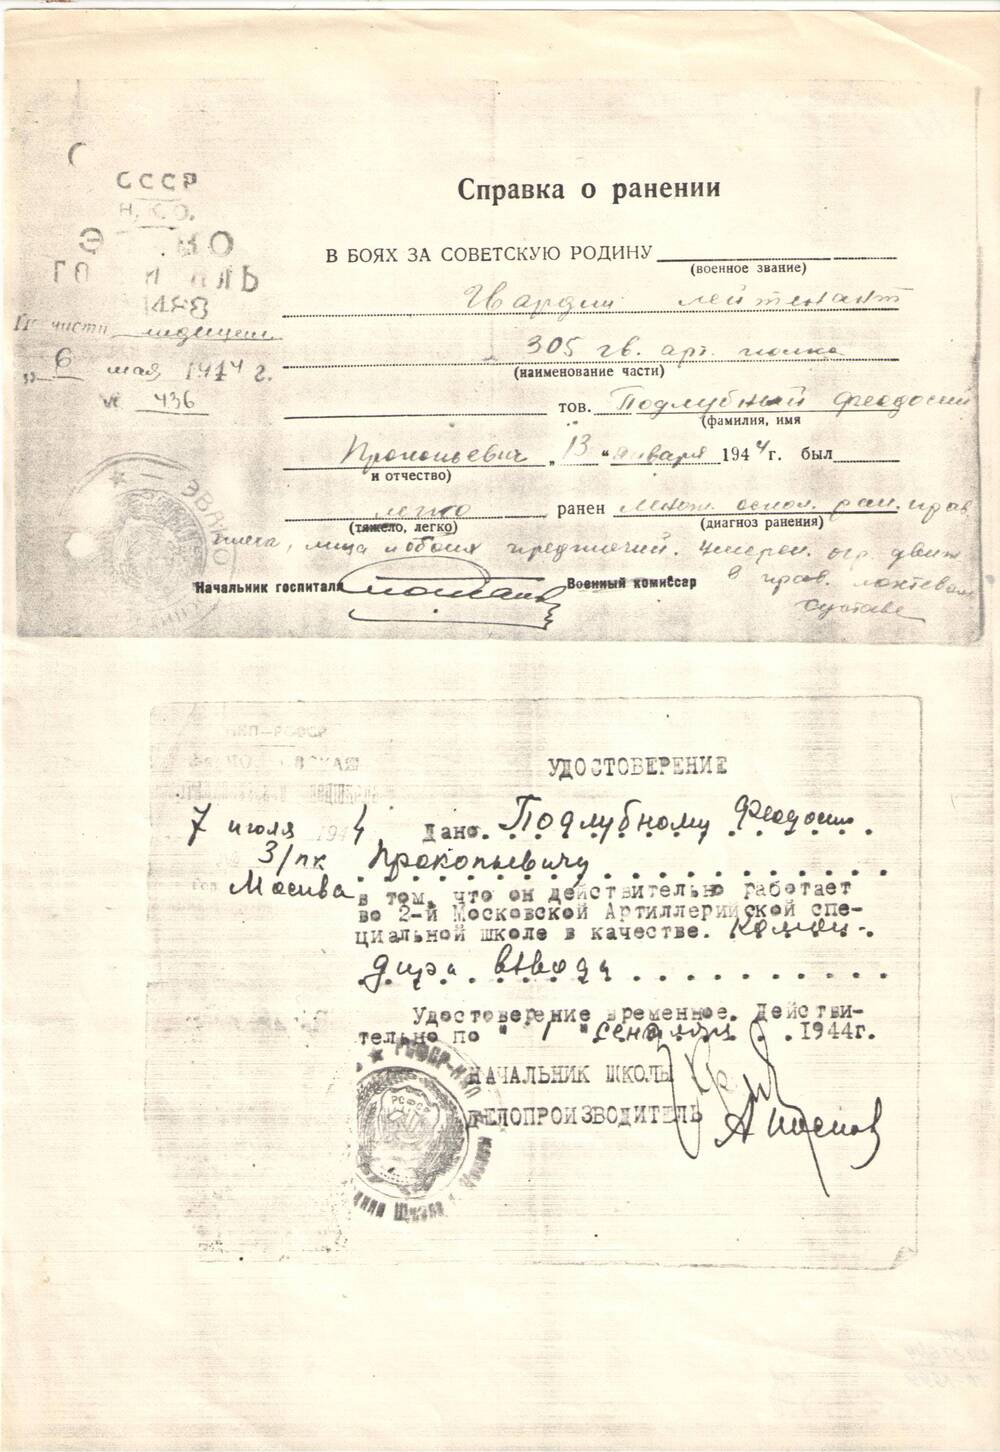 СССР
Н.К.О.
ЭВАКО
ГОСПИТАЛЬ
По части медицин.
„ 6 мая 1944 г.
№ 436
Справка о ранении
В БОЯХ ЗА СОВЕТСКУЮ РОДИНУ
(военное звание)
Гвардии лейтенант
305 гв. арт. полка
(наименование части)
тов. Подлубный Феодосий
(фамилия, имя
Прокопьевич „13“ января 1944 г. был
и отчество)
легко ранен множ. оскол. ран. прав.
(тяжело, легко) (диагноз ранения)
плеча, лица и обоих предплечий. Умерен. огр. движ.
Начальник госпиталя Военный комиссар в прав. локтевом
суставе
ЭВАКО
НКП-РСФСР
УДОСТОВЕРЕНИЕ
7 июля 1944 Дано. Подлубному Феодосию
З/пк Прокопьевичу
Москва в том, что он действительно работает
во 2-й Московской Артиллерийской спе-
циальной школе в качестве. коман-
дира взвода
Удостоверение временное. Действи-
тельно по "1" сентября 1944г.
НАЧАЛЬНИК ШКОЛЫ
ДЕЛОПРОИЗВОДИТЕЛЬ
РСФСР-НКП
РСФСР